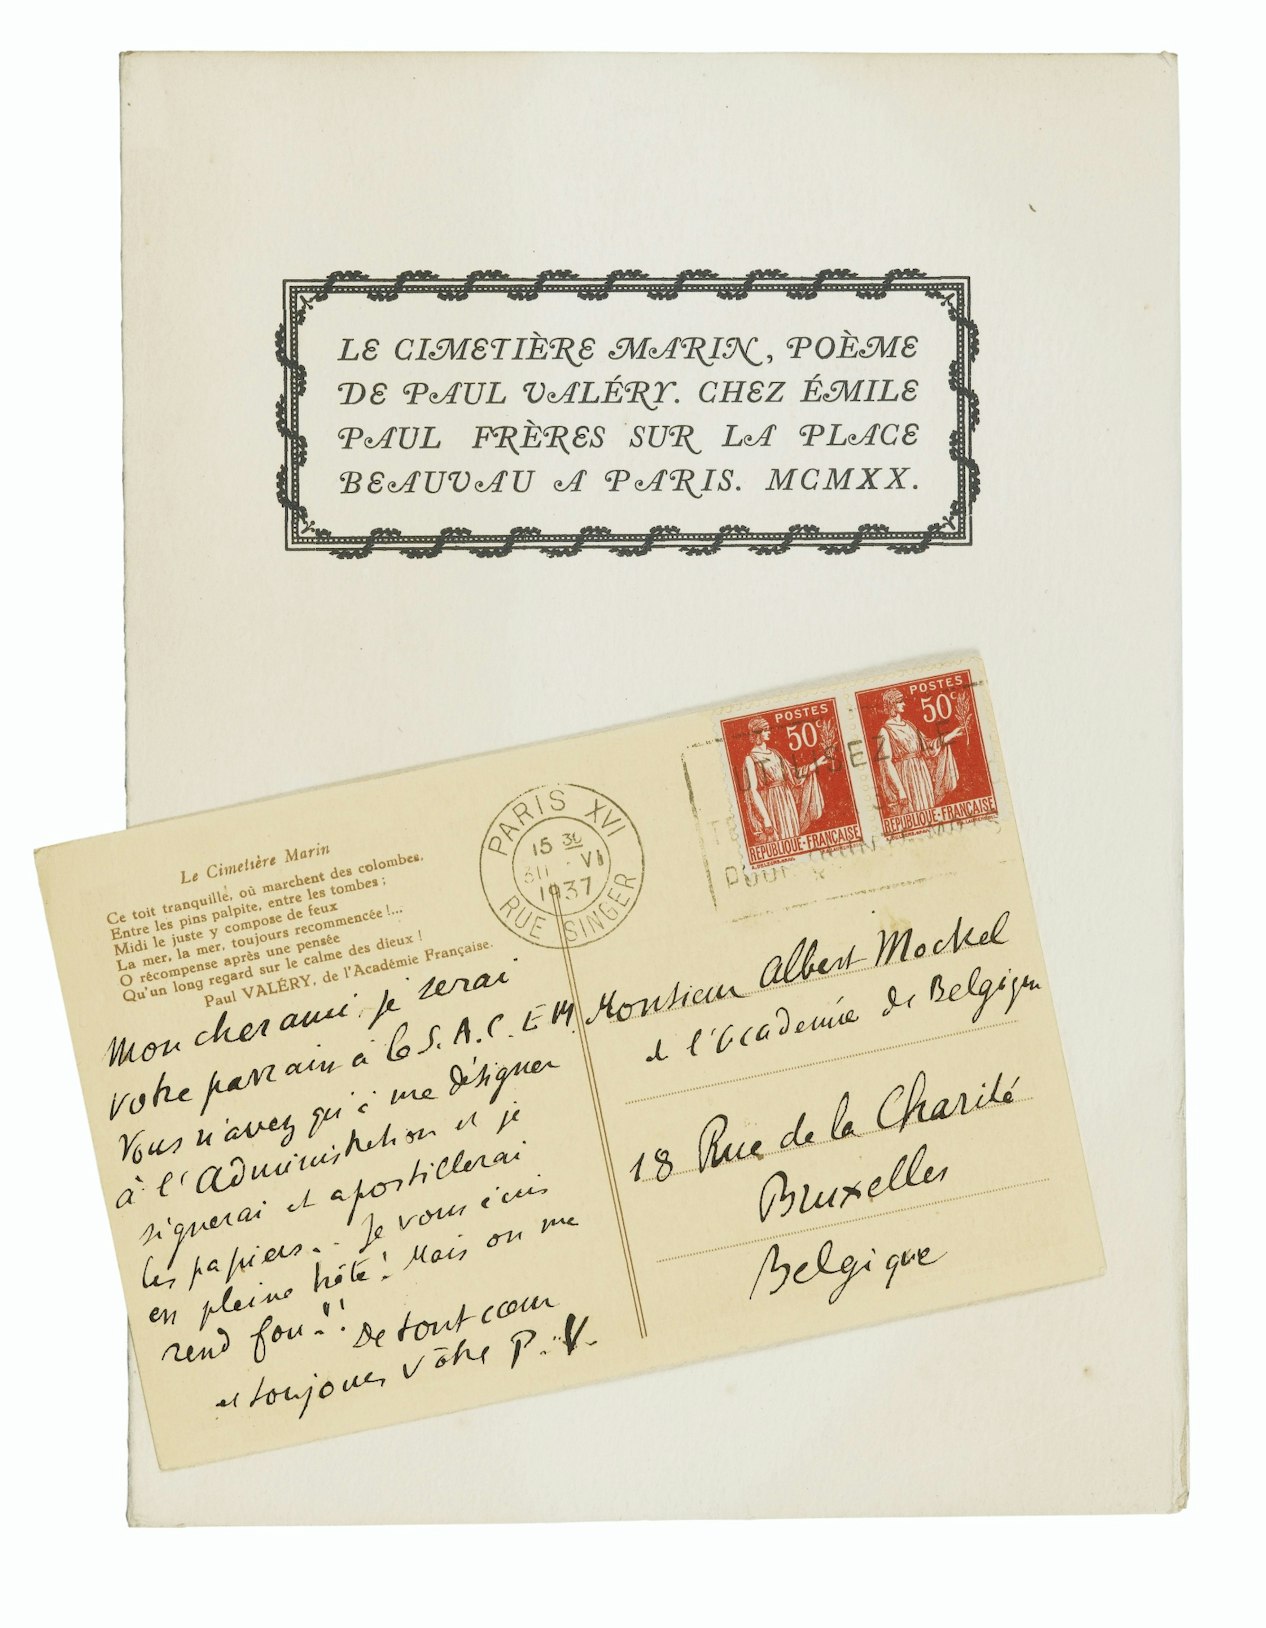 LE CIMETIÈRE MARIN, POÈME
DE PAUL VALÉRY. CHEZ ÉMILE
PAUL FRÈRES SUR LA PLACE
BEAUVAU A PARIS. MCMXX.
POSTES
50c
RÉPUBLIQUE·FRANÇAISE
POSTES
50c
RÉPUBLIQUE·FRANÇAISE
UTILISEZ LE
PARIS XVI
15 30
VI
1937
RUE SINGER
Le Cimetière Marin
Ce toit tranquille, où marchent des colombes,
Entre les pins palpite, entre les tombes ;
Midi le juste y compose de feux
La mer, la mer, toujours recommencée !...
O récompense après une pensée
Qu'un long regard sur le calme des dieux !
Paul VALÉRY, de l'Académie Française.
Mon cher ami, je serai
votre parrain à la S.A.C.E.M.
Vous n'avez qu'à me désigner
à l'Administration et je
signerai et apostillerai
les papiers... Je vous écris
en pleine hâte ! Mais on me
rend fou !
De tout cœur
et toujours vôtre P.V.
Monsieur Albert Mockel
de l'Académie de Belgique
18 Rue de la Charité
Bruxelles
Belgique